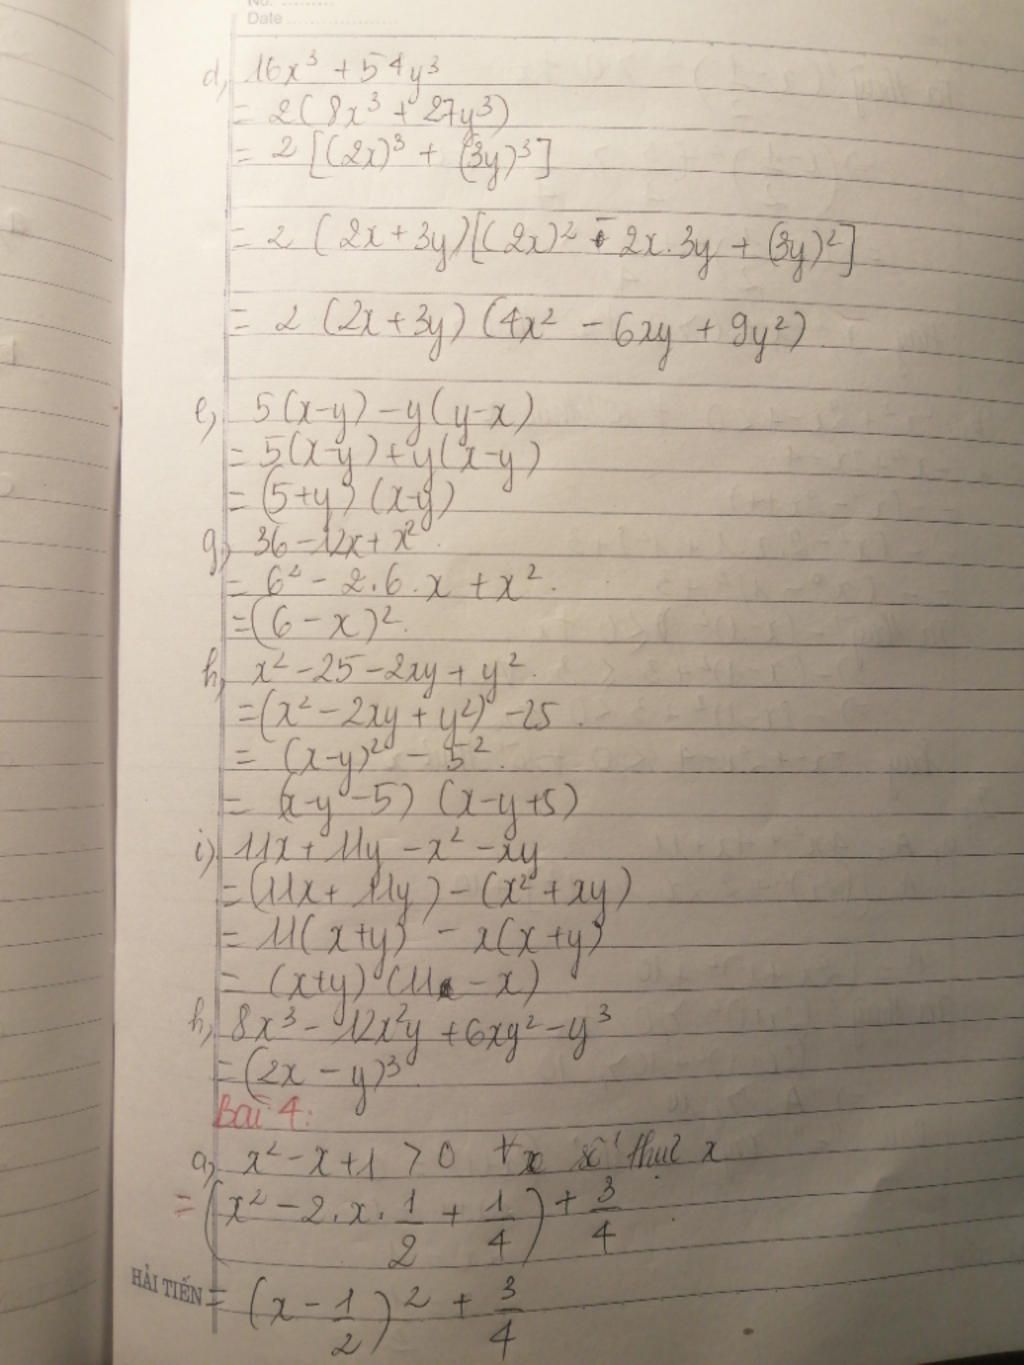 No. ..........
Date ....................
d, 16x³ + 54y³
= 2(8x³ + 27y³)
= 2[(2x)³ + (3y)³]
= 2(2x+3y)[(2x)² - 2x.3y + (3y)²]
= 2(2x+3y)(4x² - 6xy + 9y²)
e, 5(x-y) - y(y-x)
= 5(x-y) + y(x-y)
= (5+y)(x-y)
g, 36 - 12x + x².
= 6² - 2.6.x + x².
= (6 - x)².
h, x² - 25 - 2xy + y².
= (x² - 2xy + y²) - 25.
= (x-y)² - 5².
= (x-y-5)(x-y+5)
i, 11x + 11y - x² - xy
= (11x + 11y) - (x² + xy)
= 11(x+y) - x(x+y)
= (x+y)(11 - x)
h, 8x³ - 12x²y + 6xy² - y³
= (2x - y)³
Bài 4:
a, x² - x + 1 > 0 ∀x số thực x
= (x² - 2.x.1/2 + 1/4) + 3/4
HẢI TIẾN = (x - 1/2)² + 3/4